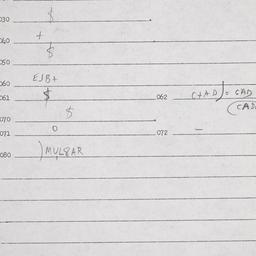 030 $
040 +
$
050
060 EJB+
061 $ 062 (+AD) = CAD
(CAD
070 $
071 0 072 –
080 )MUL&AR